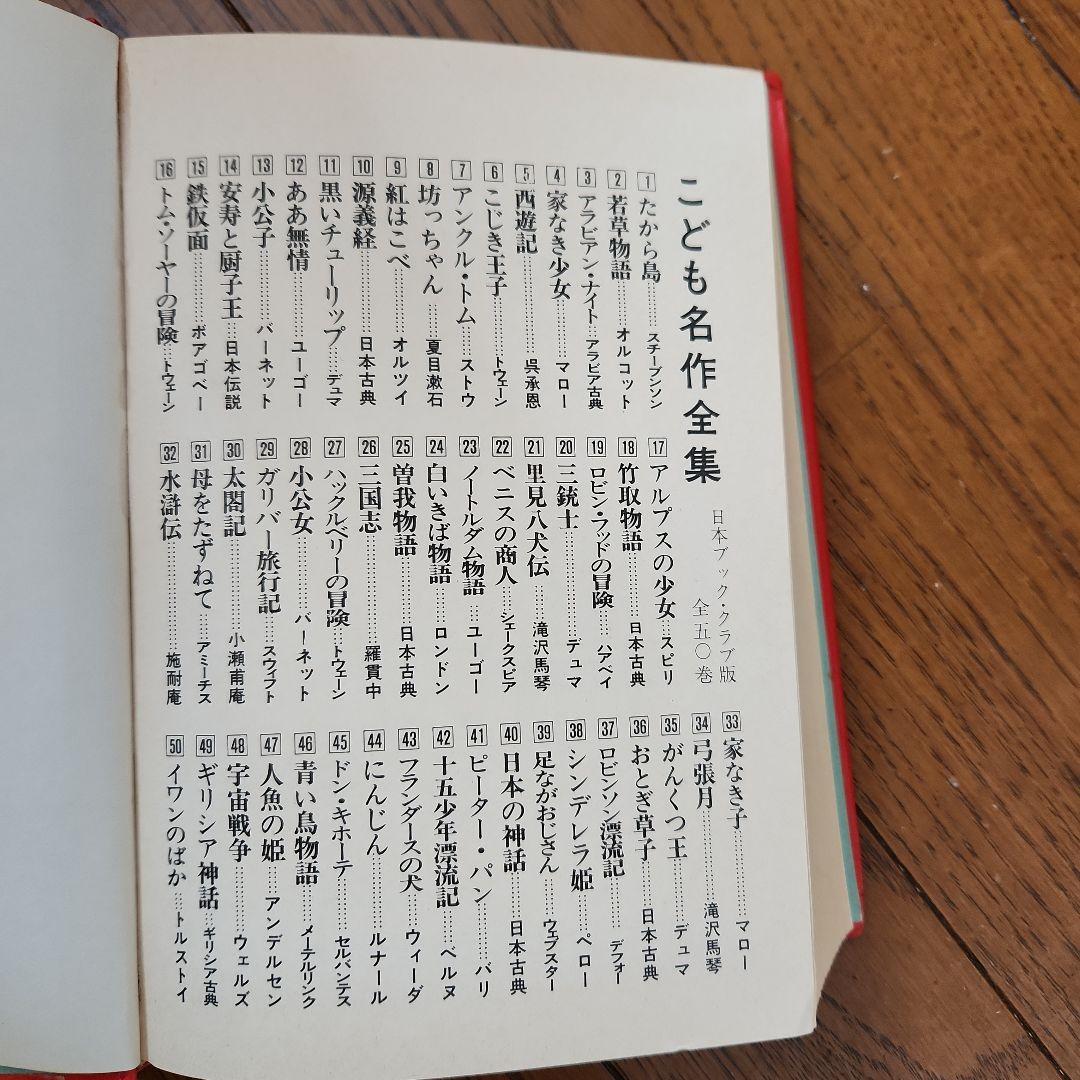 こども名作全集
日本ブック・クラブ版
全五〇巻
1 たから島……スチーブンソン
2 若草物語……オルコット
3 アラビアン・ナイト……アラビア古典
4 家なき少女……マロー
5 西遊記……呉承恩
6 こじき王子……トウェーン
7 アンクル・トム……ストウ
8 坊っちゃん……夏目漱石
9 紅はこべ……オルツイ
10 源義経……日本古典
11 黒いチューリップ……デュマ
12 ああ無情……ユーゴー
13 小公子……バーネット
14 安寿と厨子王……日本伝説
15 鉄仮面……ボアゴベー
16 トム・ソーヤーの冒険……トウェーン
17 アルプスの少女……スピリ
18 竹取物語……日本古典
19 ロビン・フッドの冒険……ハアベイ
20 三銃士……デュマ
21 里見八犬伝……滝沢馬琴
22 ベニスの商人……シェークスピア
23 ノートルダム物語……ユーゴー
24 白いきば物語……ロンドン
25 曽我物語……日本古典
26 三国志……羅貫中
27 ハックルベリーの冒険……トウェーン
28 小公女……バーネット
29 ガリバー旅行記……スウィフト
30 太閤記……小瀬甫庵
31 母をたずねて……アミーチス
32 水滸伝……施耐庵
33 家なき子……マロー
34 弓張月……滝沢馬琴
35 がんくつ王……デュマ
36 おとぎ草子……日本古典
37 ロビンソン漂流記……デフォー
38 シンデレラ姫……ペロー
39 足ながおじさん……ウェブスター
40 日本の神話……日本古典
41 ピーター・パン……バリ
42 十五少年漂流記……ベルヌ
43 フランダースの犬……ウィーダ
44 にんじん……ルナール
45 ドン・キホーテ……セルバンテス
46 青い鳥物語……メーテルリンク
47 人魚の姫……アンデルセン
48 宇宙戦争……ウェルズ
49 ギリシア神話……ギリシア古典
50 イワンのばか……トルストイ